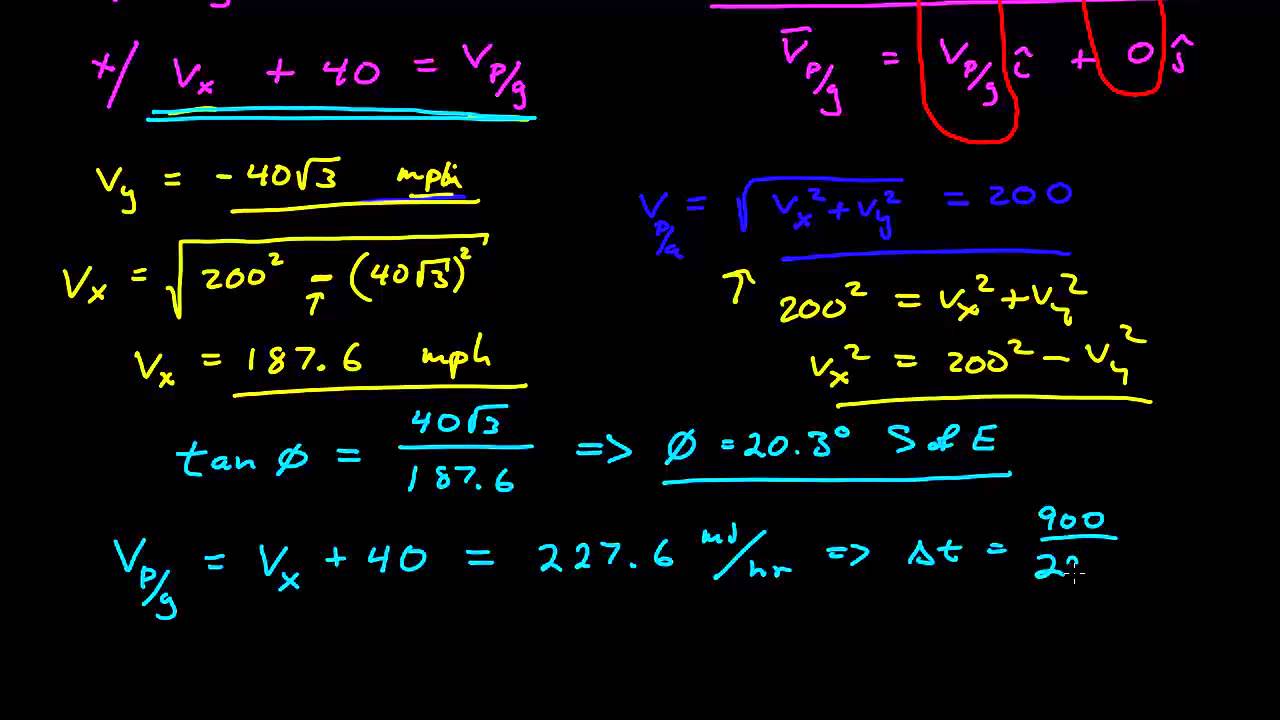 +/ Vx + 40 = Vp/g
V̄p/g = Vp/g î + 0 ĵ
Vy = -40√3 mph
Vp/a = √(Vx² + Vy²) = 200
Vx = √(200² - (40√3)²)
↑ 200² = Vx² + Vy²
Vx = 187.6 mph
Vx² = 200² - Vy²
tan ϕ = 40√3 / 187.6 => ϕ = 20.3° S of E
Vp/g = Vx + 40 = 227.6 mi/hr => Δt = 900 / 22